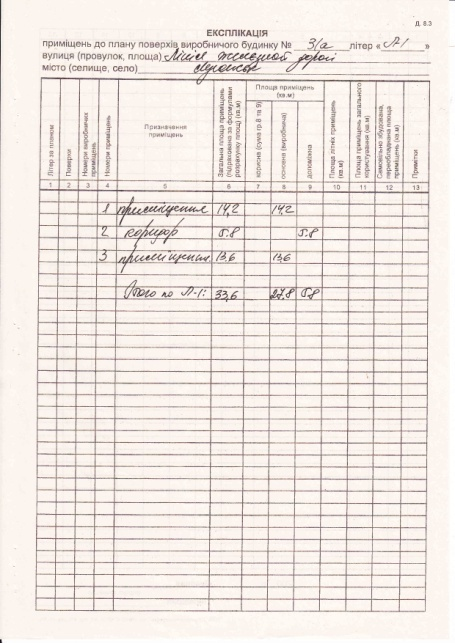 Д. 8.3
ЕКСПЛІКАЦІЯ
приміщень до плану поверхів виробничого будинку № 3/а літер « Л-1 »
вулиця (провулок, площа) Лінія
місто (селище, село)
Літер за планом
Поверхи
Номери виробничих приміщень
Номери приміщень
Призначення приміщень
Загальна площа приміщень (підрахована за формулами розрахунку площ) (кв.м)
Площа приміщень (кв.м)
корисна (сума гр.8 та 9)
основна (виробнича)
допоміжна
Площа літніх приміщень (кв.м)
Площа приміщень загального користування (кв.м)
Самовільно збудована, переобладнана площа приміщень (кв.м)
Примітки
1 2 3 4 5 6 7 8 9 10 11 12 13
1 приміщення 14,2 14,2
2 коридор 5.8 5.8
3 приміщення 13,6 13,6
Всього по Л-1: 33,6 27.8 5.8